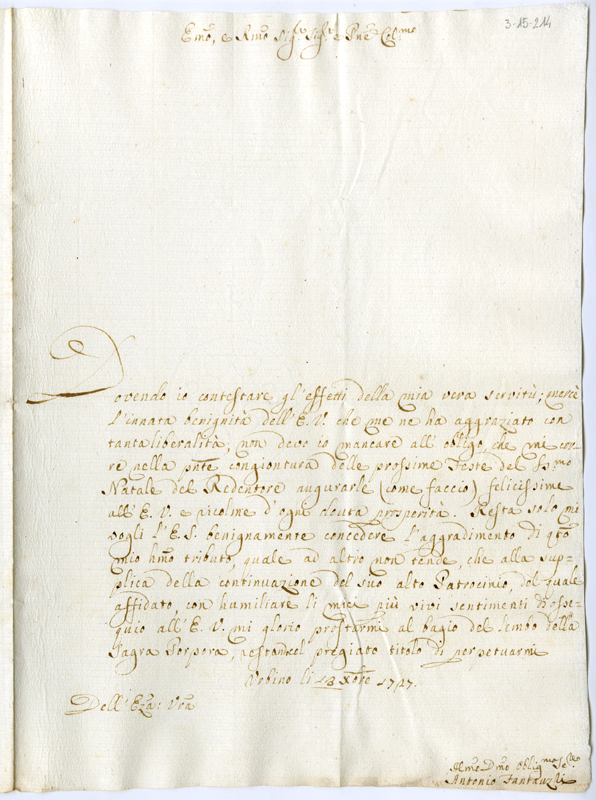 3-15-214
Emo, e Rmo Sigr Sigr e Pne Colmo
Dovendo io contestare gl'effetti della mia vera servitù; mercè
l'innata benignità dell'E.V. che me ne ha aggraziato con
tanta liberalità, non devo io mancare all'obligo, che mi cor-
re nella pnte congiontura delle prossime Feste del Ssmo
Natale del Redentore augurarle (come faccio) felicissime
all'E.V. e ricolme d'ogni devuta prosperità. Resta solo mi
vogli l'E.S. benignamente concedere l'aggradimento di qto
mio hmo tributo, quale ad altro non tende, che alla sup=
plica della continuazione del suo alto Patrocinio, del quale
affidato, con humiliare li miei più vivi sentimenti di osse=
quio all'E.V. mi glorio prostrarmi al bagio del lembo della
Sagra Porpora, restando nel pregiato titolo di perpetuarmi
Urbino li 13 Xbre 1727.
Dell'Eza: Vra
Hmo Dmo Obligmo
Antonio Fantauzzi